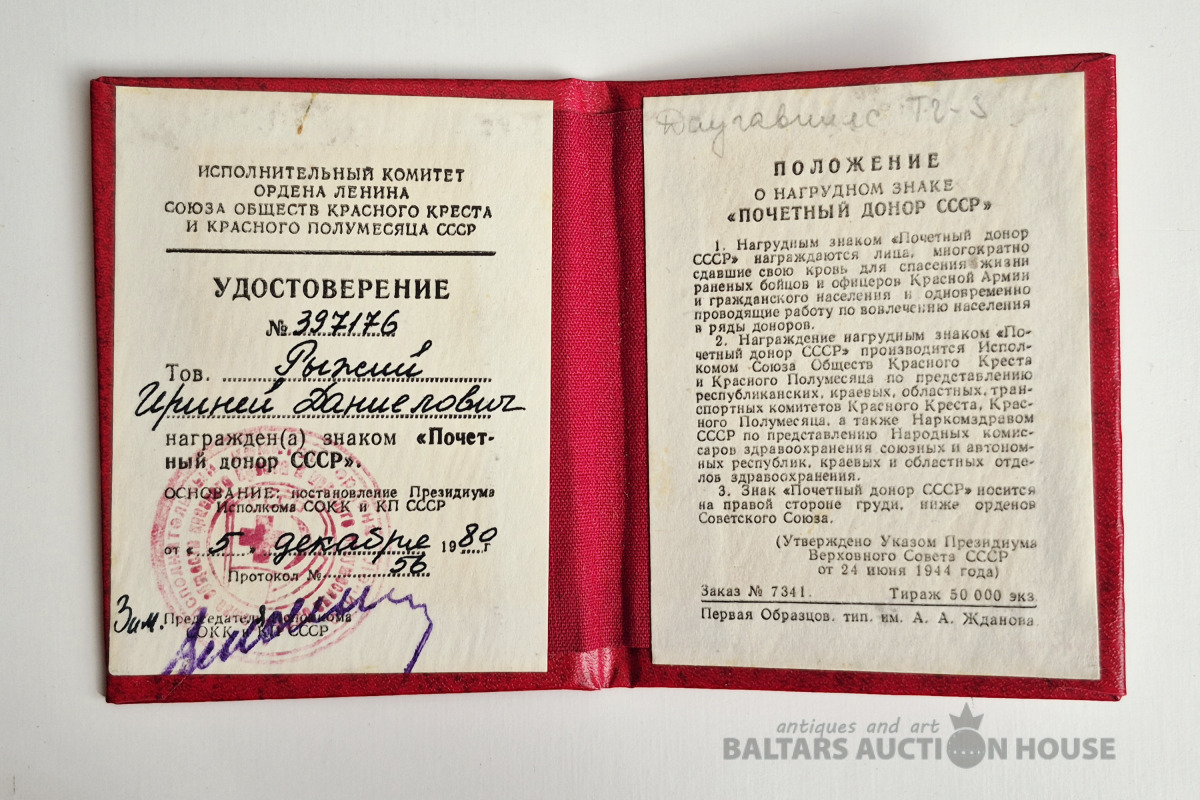 ИСПОЛНИТЕЛЬНЫЙ КОМИТЕТ
ОРДЕНА ЛЕНИНА
СОЮЗА ОБЩЕСТВ КРАСНОГО КРЕСТА
И КРАСНОГО ПОЛУМЕСЯЦА СССР
УДОСТОВЕРЕНИЕ
№ 397176
Тов. Рыжий
Ириней Даниелович
награжден(а) знаком «Почет-
ный донор СССР».
ОСНОВАНИЕ: постановление Президиума
Исполкома СОКК и КП СССР
от « 5 » декабря 1980 г
Протокол № 56
Зам. Председатель Исполкома
СОКК КП СССР
Даугавпилс
ПОЛОЖЕНИЕ
О НАГРУДНОМ ЗНАКЕ
«ПОЧЕТНЫЙ ДОНОР СССР»
1. Нагрудным знаком «Почетный донор
СССР» награждаются лица, многократно
сдавшие свою кровь для спасения жизни
раненых бойцов и офицеров Красной Армии
и гражданского населения и одновременно
проводящие работу по вовлечению населения
в ряды доноров.
2. Награждение нагрудным знаком «По-
четный донор СССР» производится Испол-
комом Союза Обществ Красного Креста
и Красного Полумесяца по представлению
республиканских, краевых, областных, тран-
спортных комитетов Красного Креста, Крас-
ного Полумесяца, а также Наркомздравом
СССР по представлению Народных комис-
саров здравоохранения союзных и автоном-
ных республик, краевых и областных отде-
лов здравоохранения.
3. Знак «Почетный донор СССР» носится
на правой стороне груди, ниже орденов
Советского Союза.
(Утверждено Указом Президиума
Верховного Совета СССР
от 24 июня 1944 года)
Заказ № 7341. Тираж 50 000 экз.
Первая Образцов. тип. им. А. А. Жданова
antiques and art
BALTARS AUCTION HOUSE